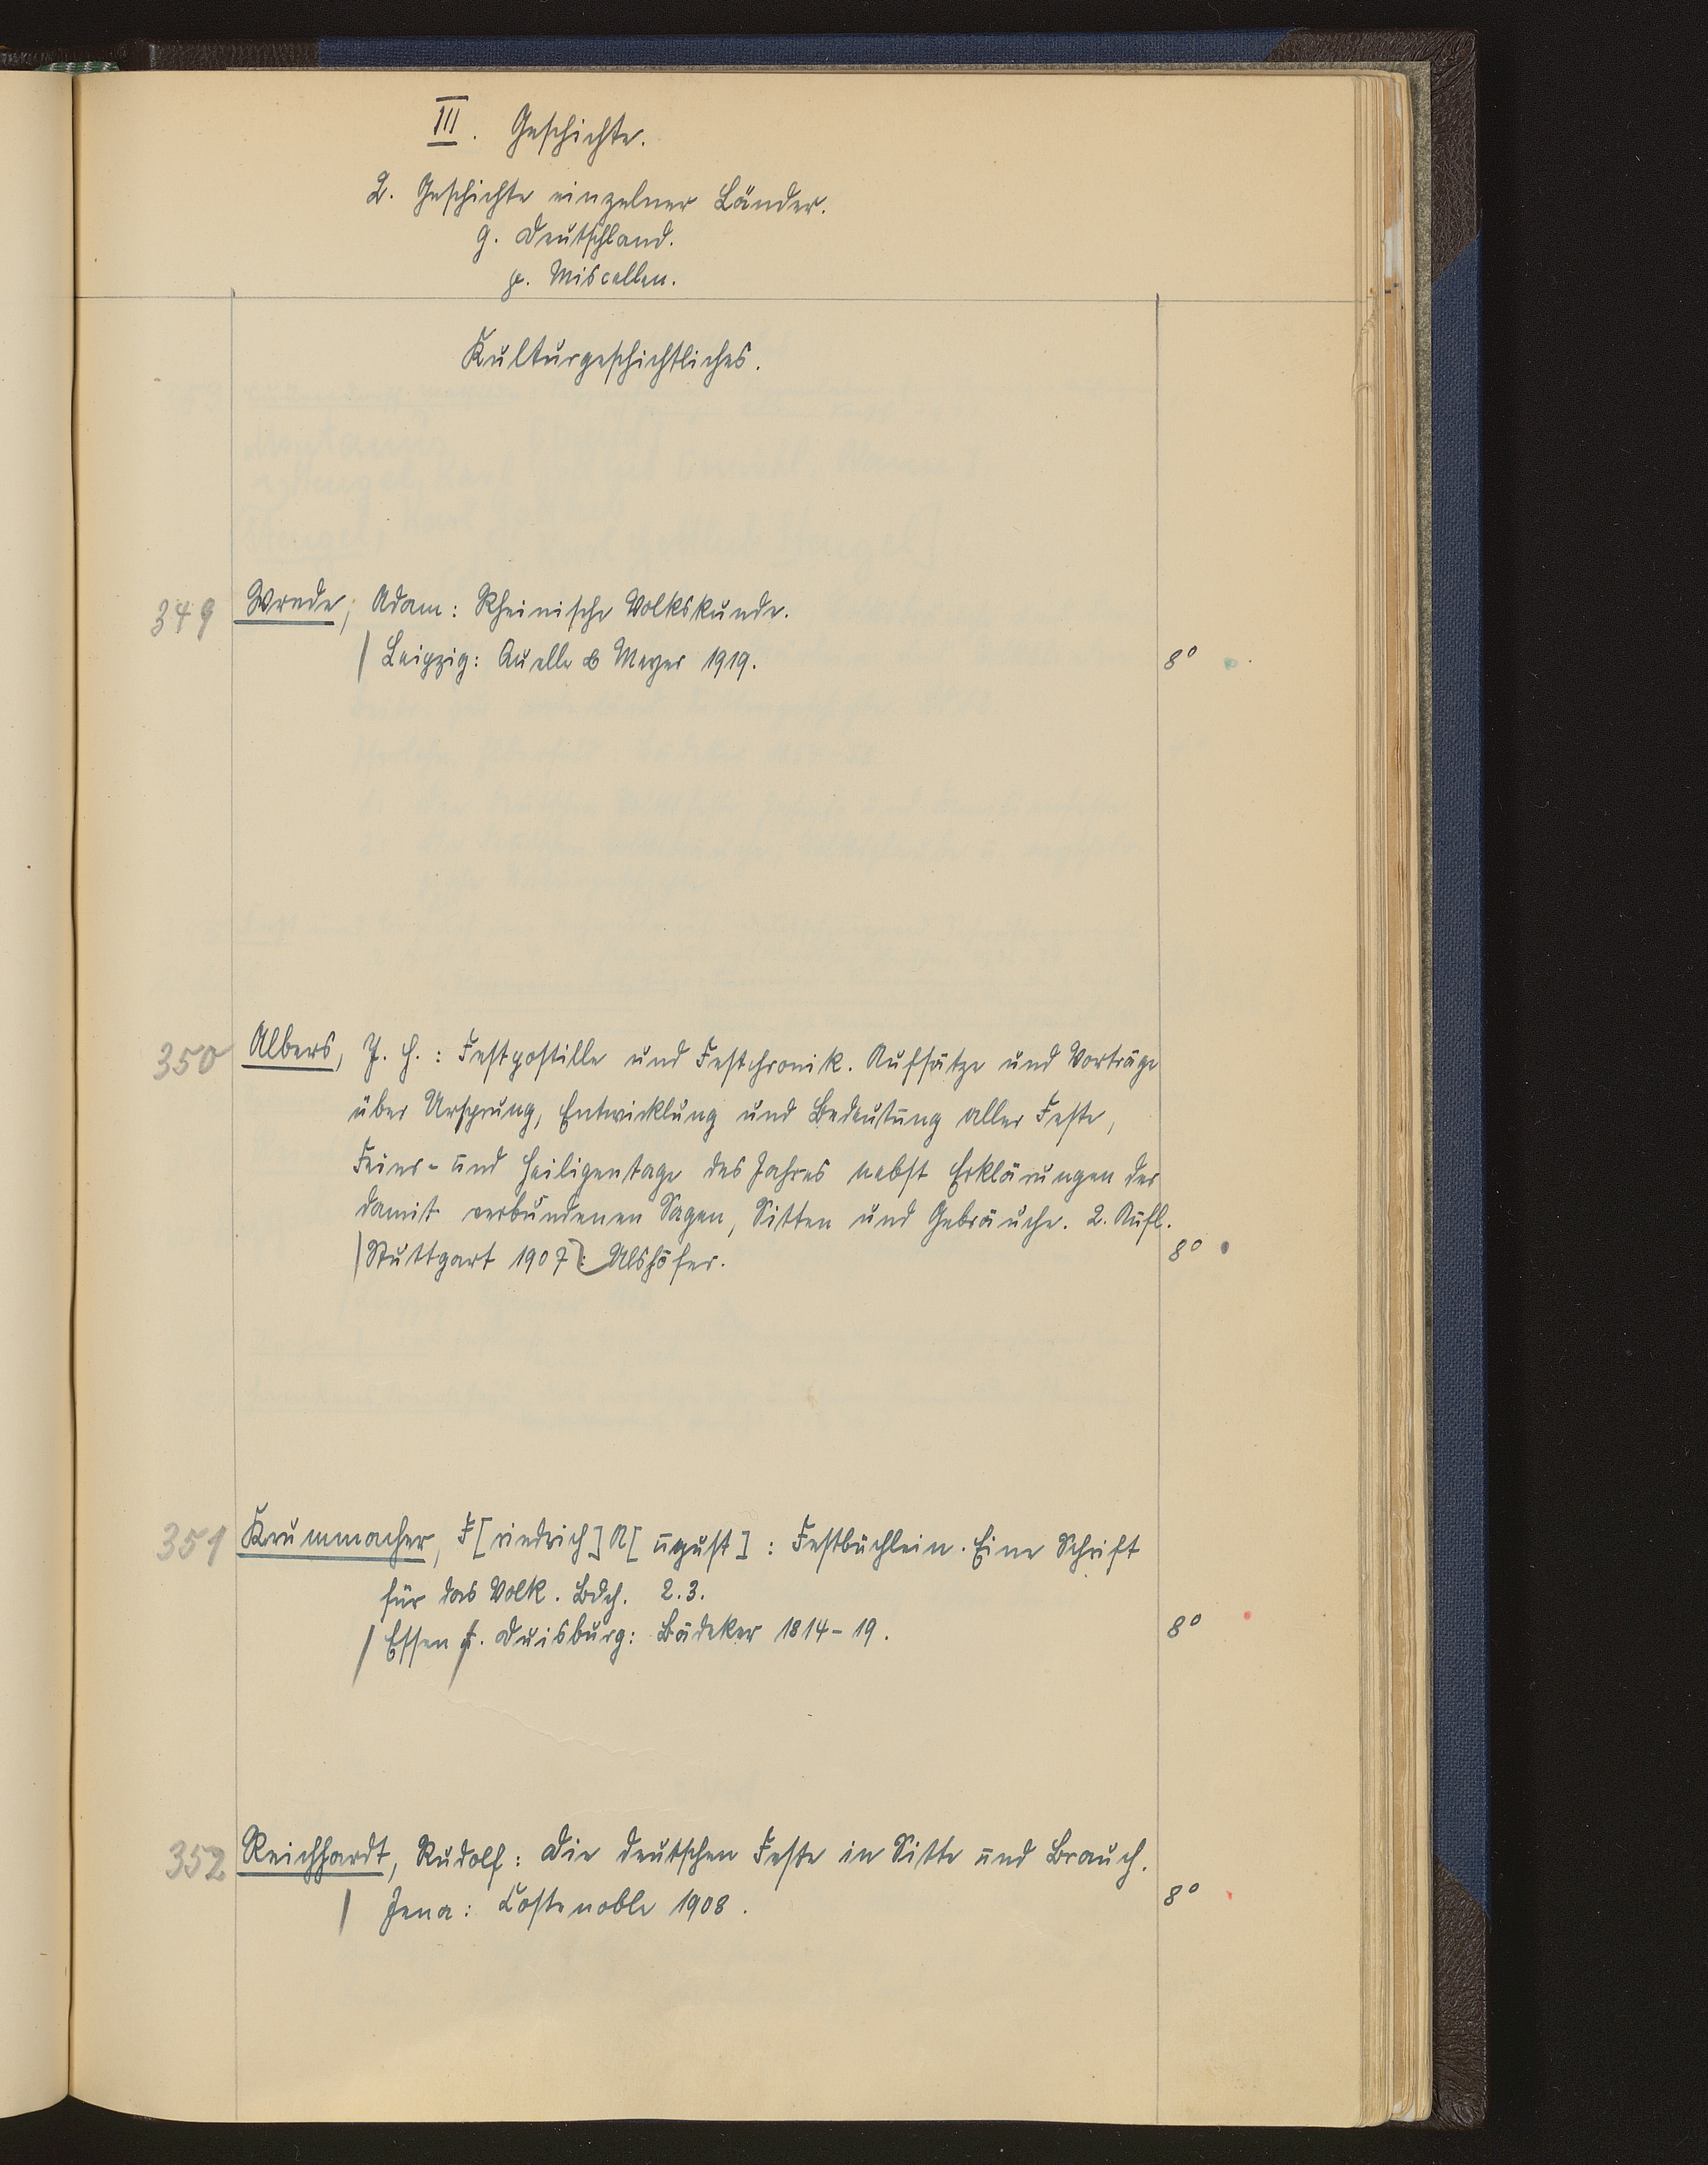 III. Geschichte.
2. Geschichte einzelner Länder.
g. Deutschland.
p. Miscellen.
Kulturgeschichtliches.
349 Wrede, Adam: Rheinische Volkskunde.
Leipzig: Quelle & Meyer 1919. 8°
350 Albers, J. H.: Festpostille und Festchronik. Aufsätze und Vorträge
über Ursprung, Entwicklung und Bedeutung aller Feste,
Feier- und Heiligentage des Jahres nebst Erklärungen der
damit verbundenen Sagen, Sitten und Gebräuche. 2. Aufl.
Stuttgart 1907: Ulshöfer. 8°
351 Krummacher, F[riedrich] A[ugust]: Festbüchlein. Eine Schrift
für das Volk. Bdch. 2.3.
Essen u. Duisburg: Bädeker 1814-19. 8°
352 Reichhardt, Rudolf: Die deutschen Feste in Sitte und Brauch.
Jena: Costenoble 1908. 8°